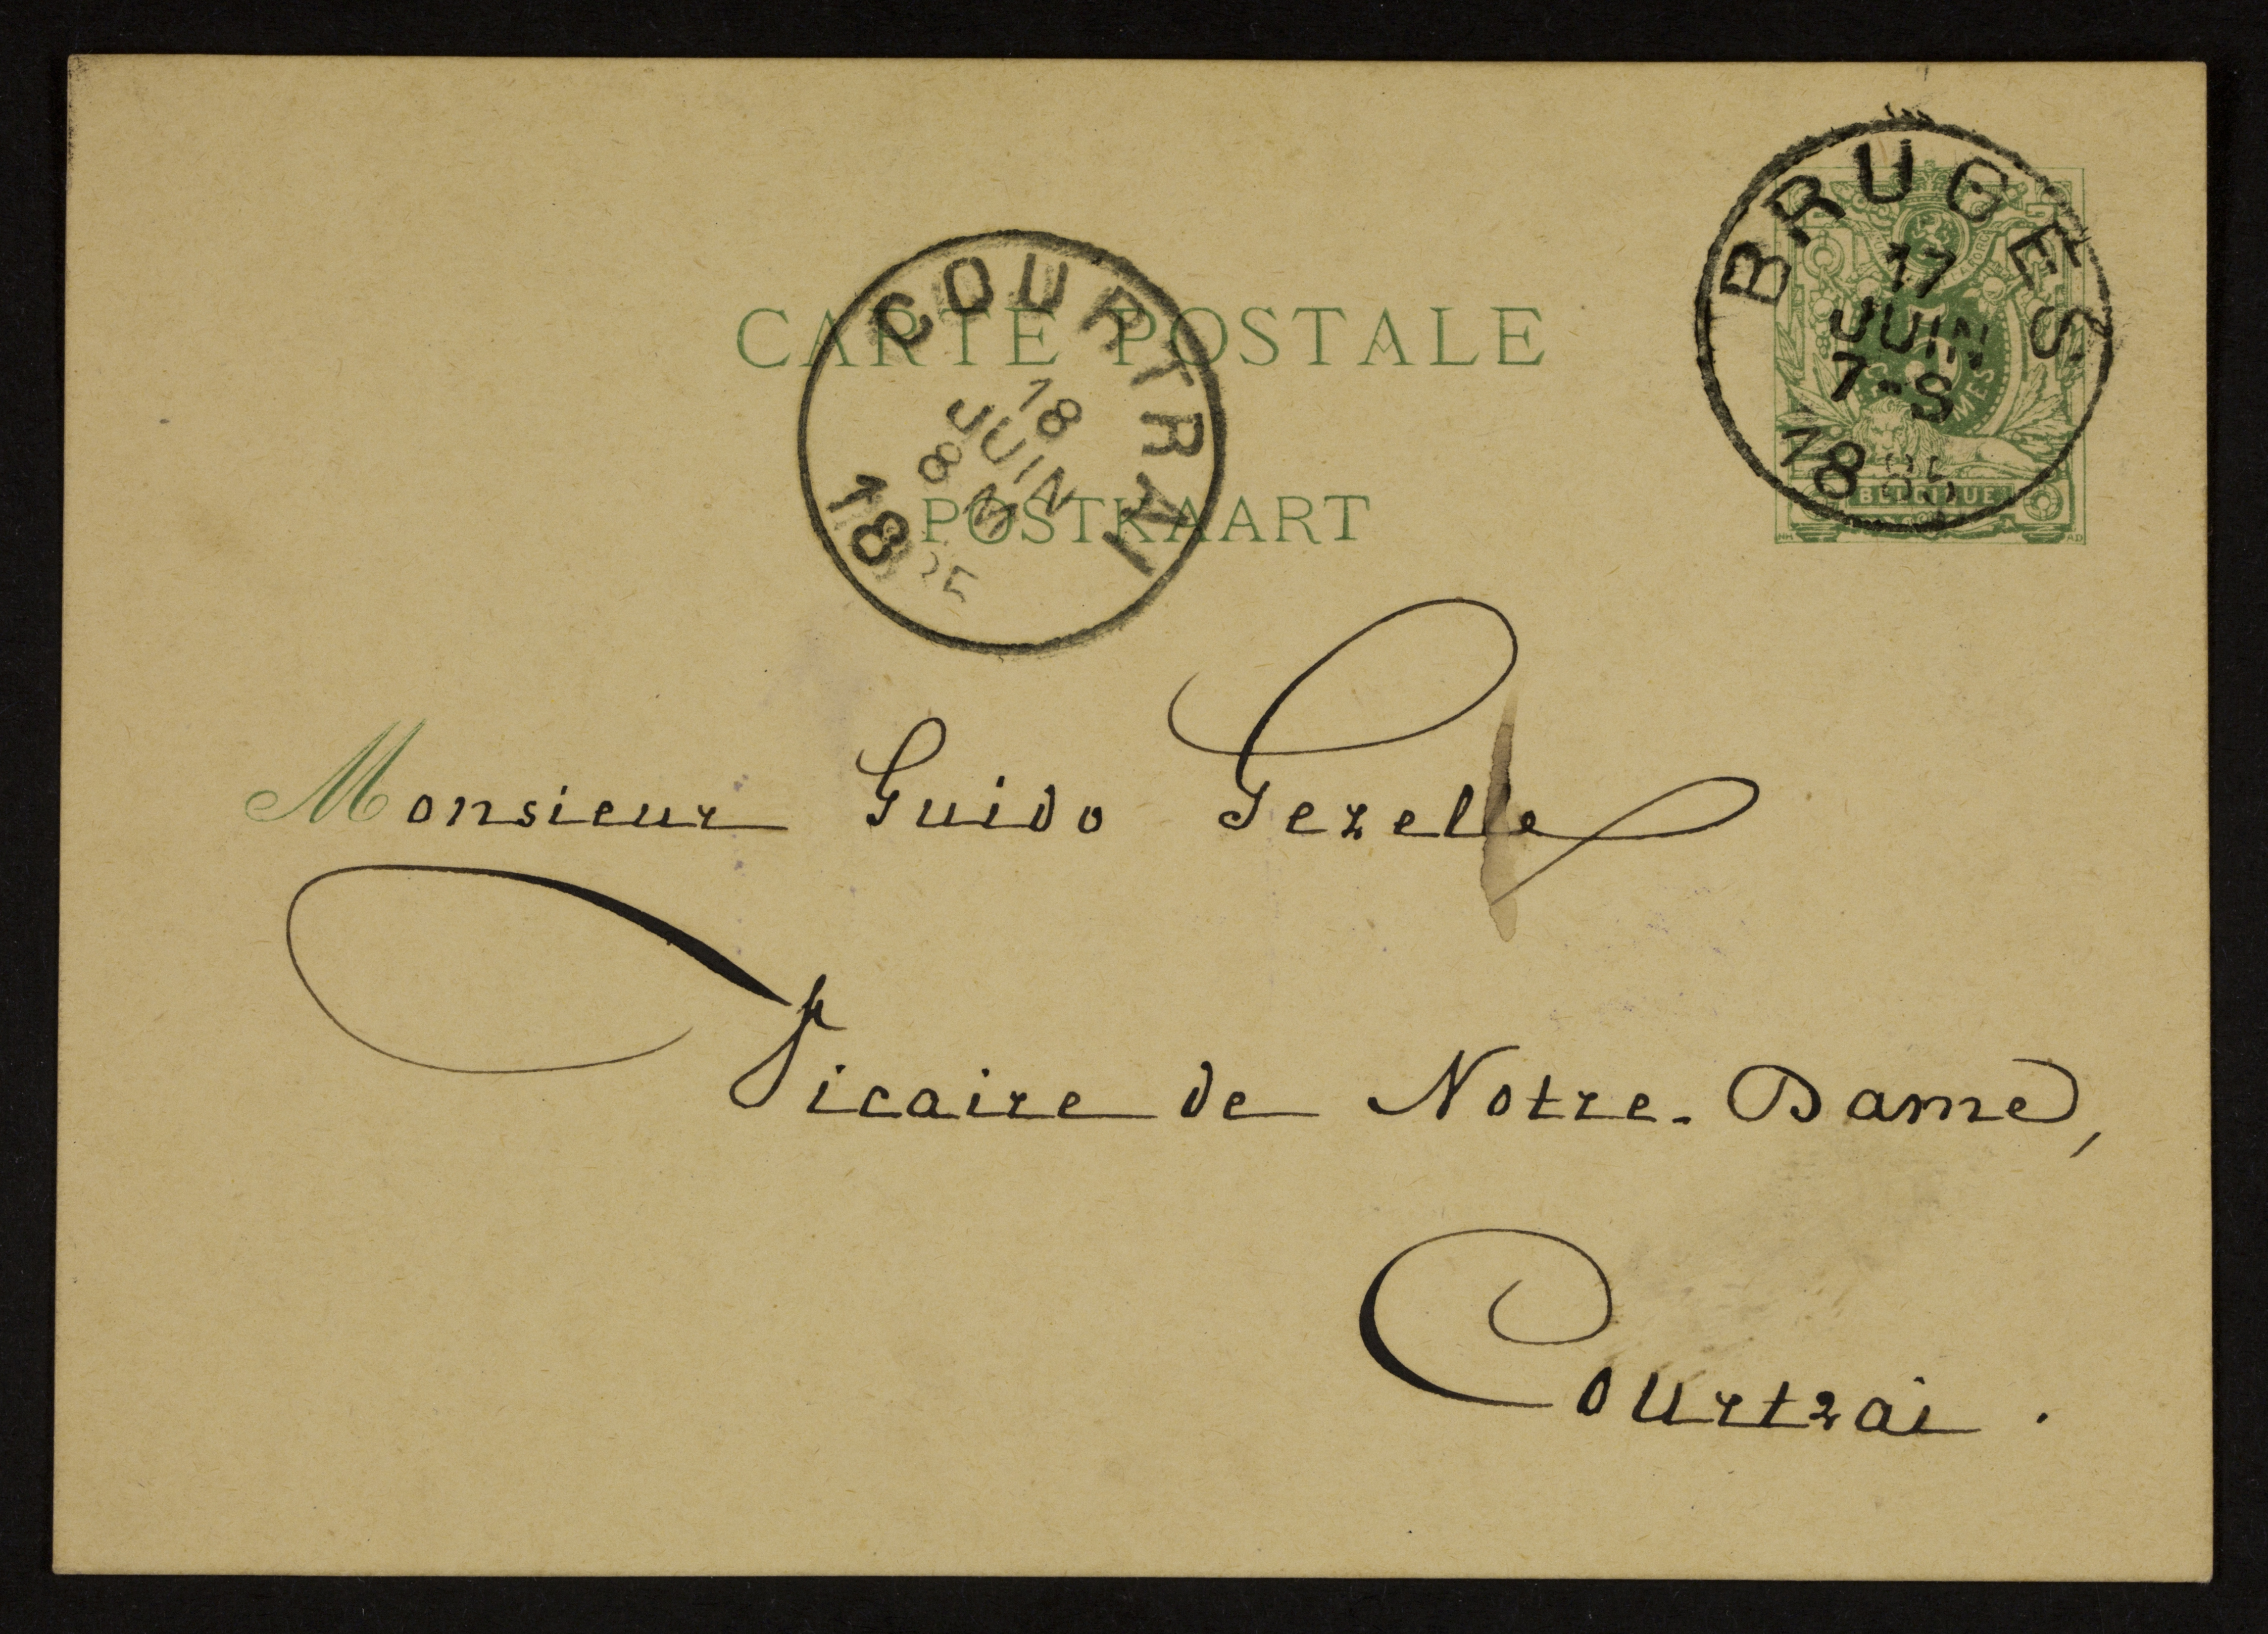 BRUGES
17
JUIN
7-S
1885
BELGIQUE
COURTRAI
18
JUIN
8 M
18
CARTE POSTALE
POSTKAART
Monsieur Guido Gezelle
Vicaire de Notre-Dame,
Courtrai.